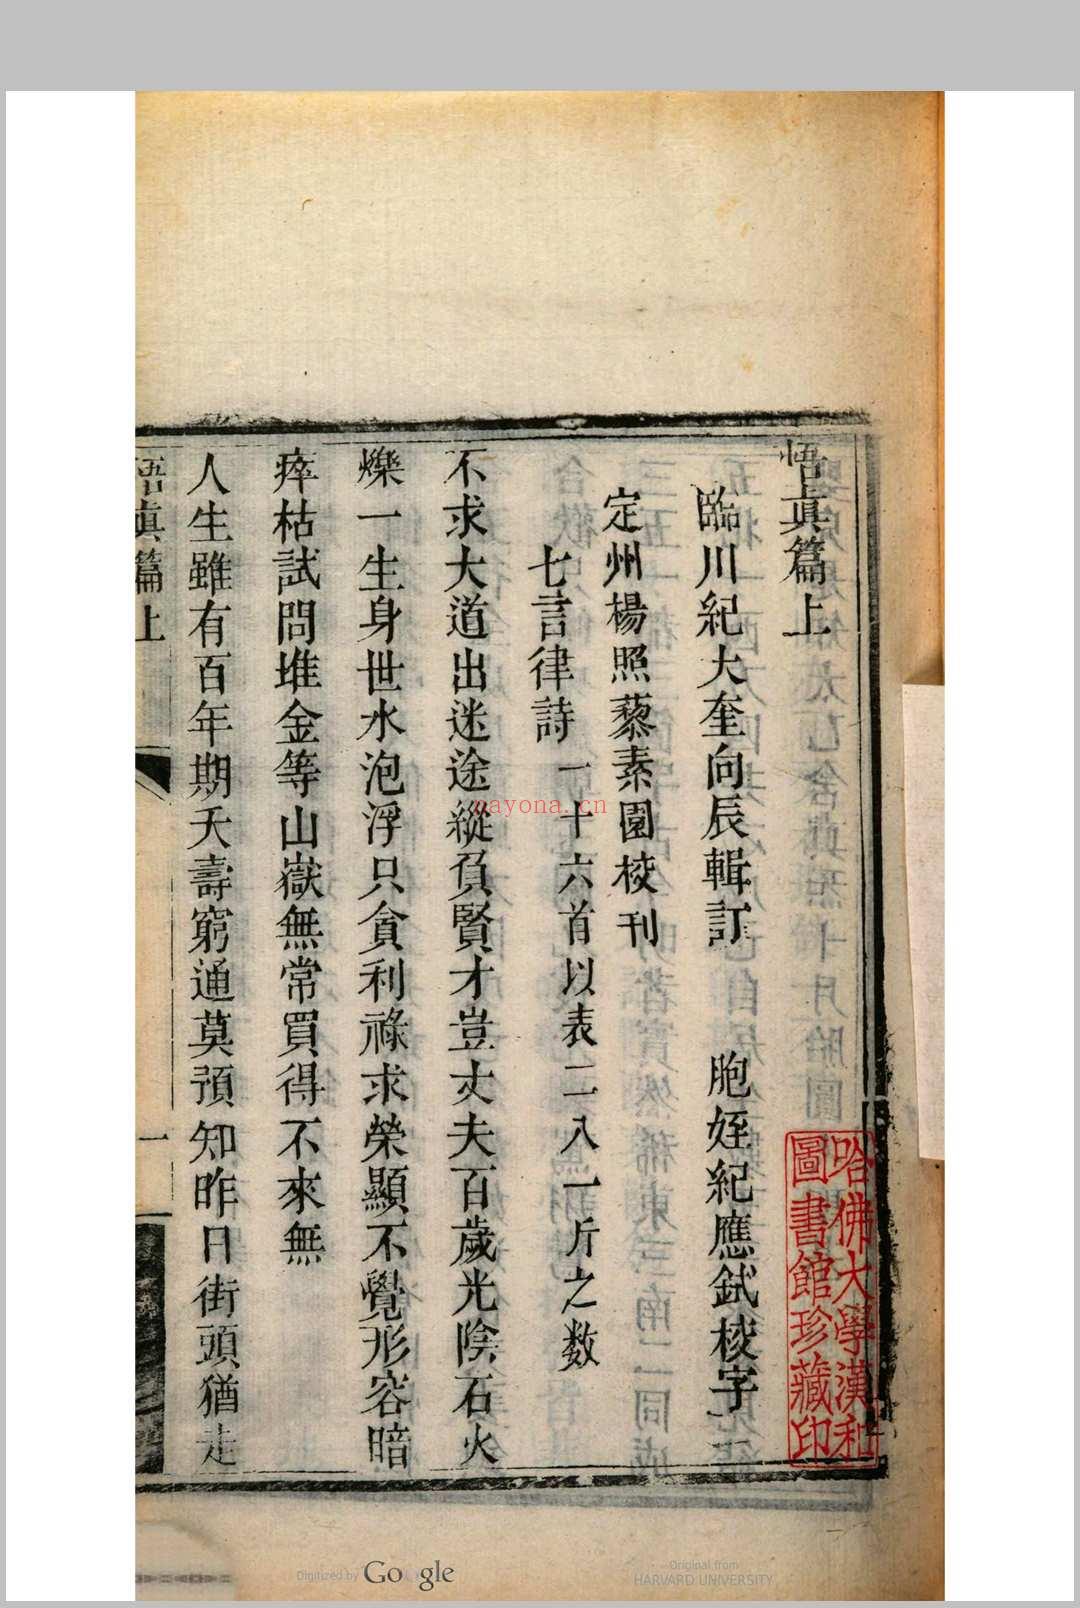 悟眞篇上
臨川紀大奎向辰輯訂 胞姪紀應鉽校字
定州楊照藜素園校刊
七言律詩 一十六首以表二八一斤之数
不求大道出迷途縱負賢才豈丈夫百歲光陰石火
爍一生身世水泡浮只貪利祿求榮顯不覺形容暗
瘁枯試問堆金等山嶽無常買得不來無
人生雖有百年期夭壽窮通莫預知昨日街頭猶走
悟眞篇上
一
哈佛大學漢和
圖書館珍藏印
nayona.cn
Digitized by Google
Original from
HARVARD UNIVERSITY